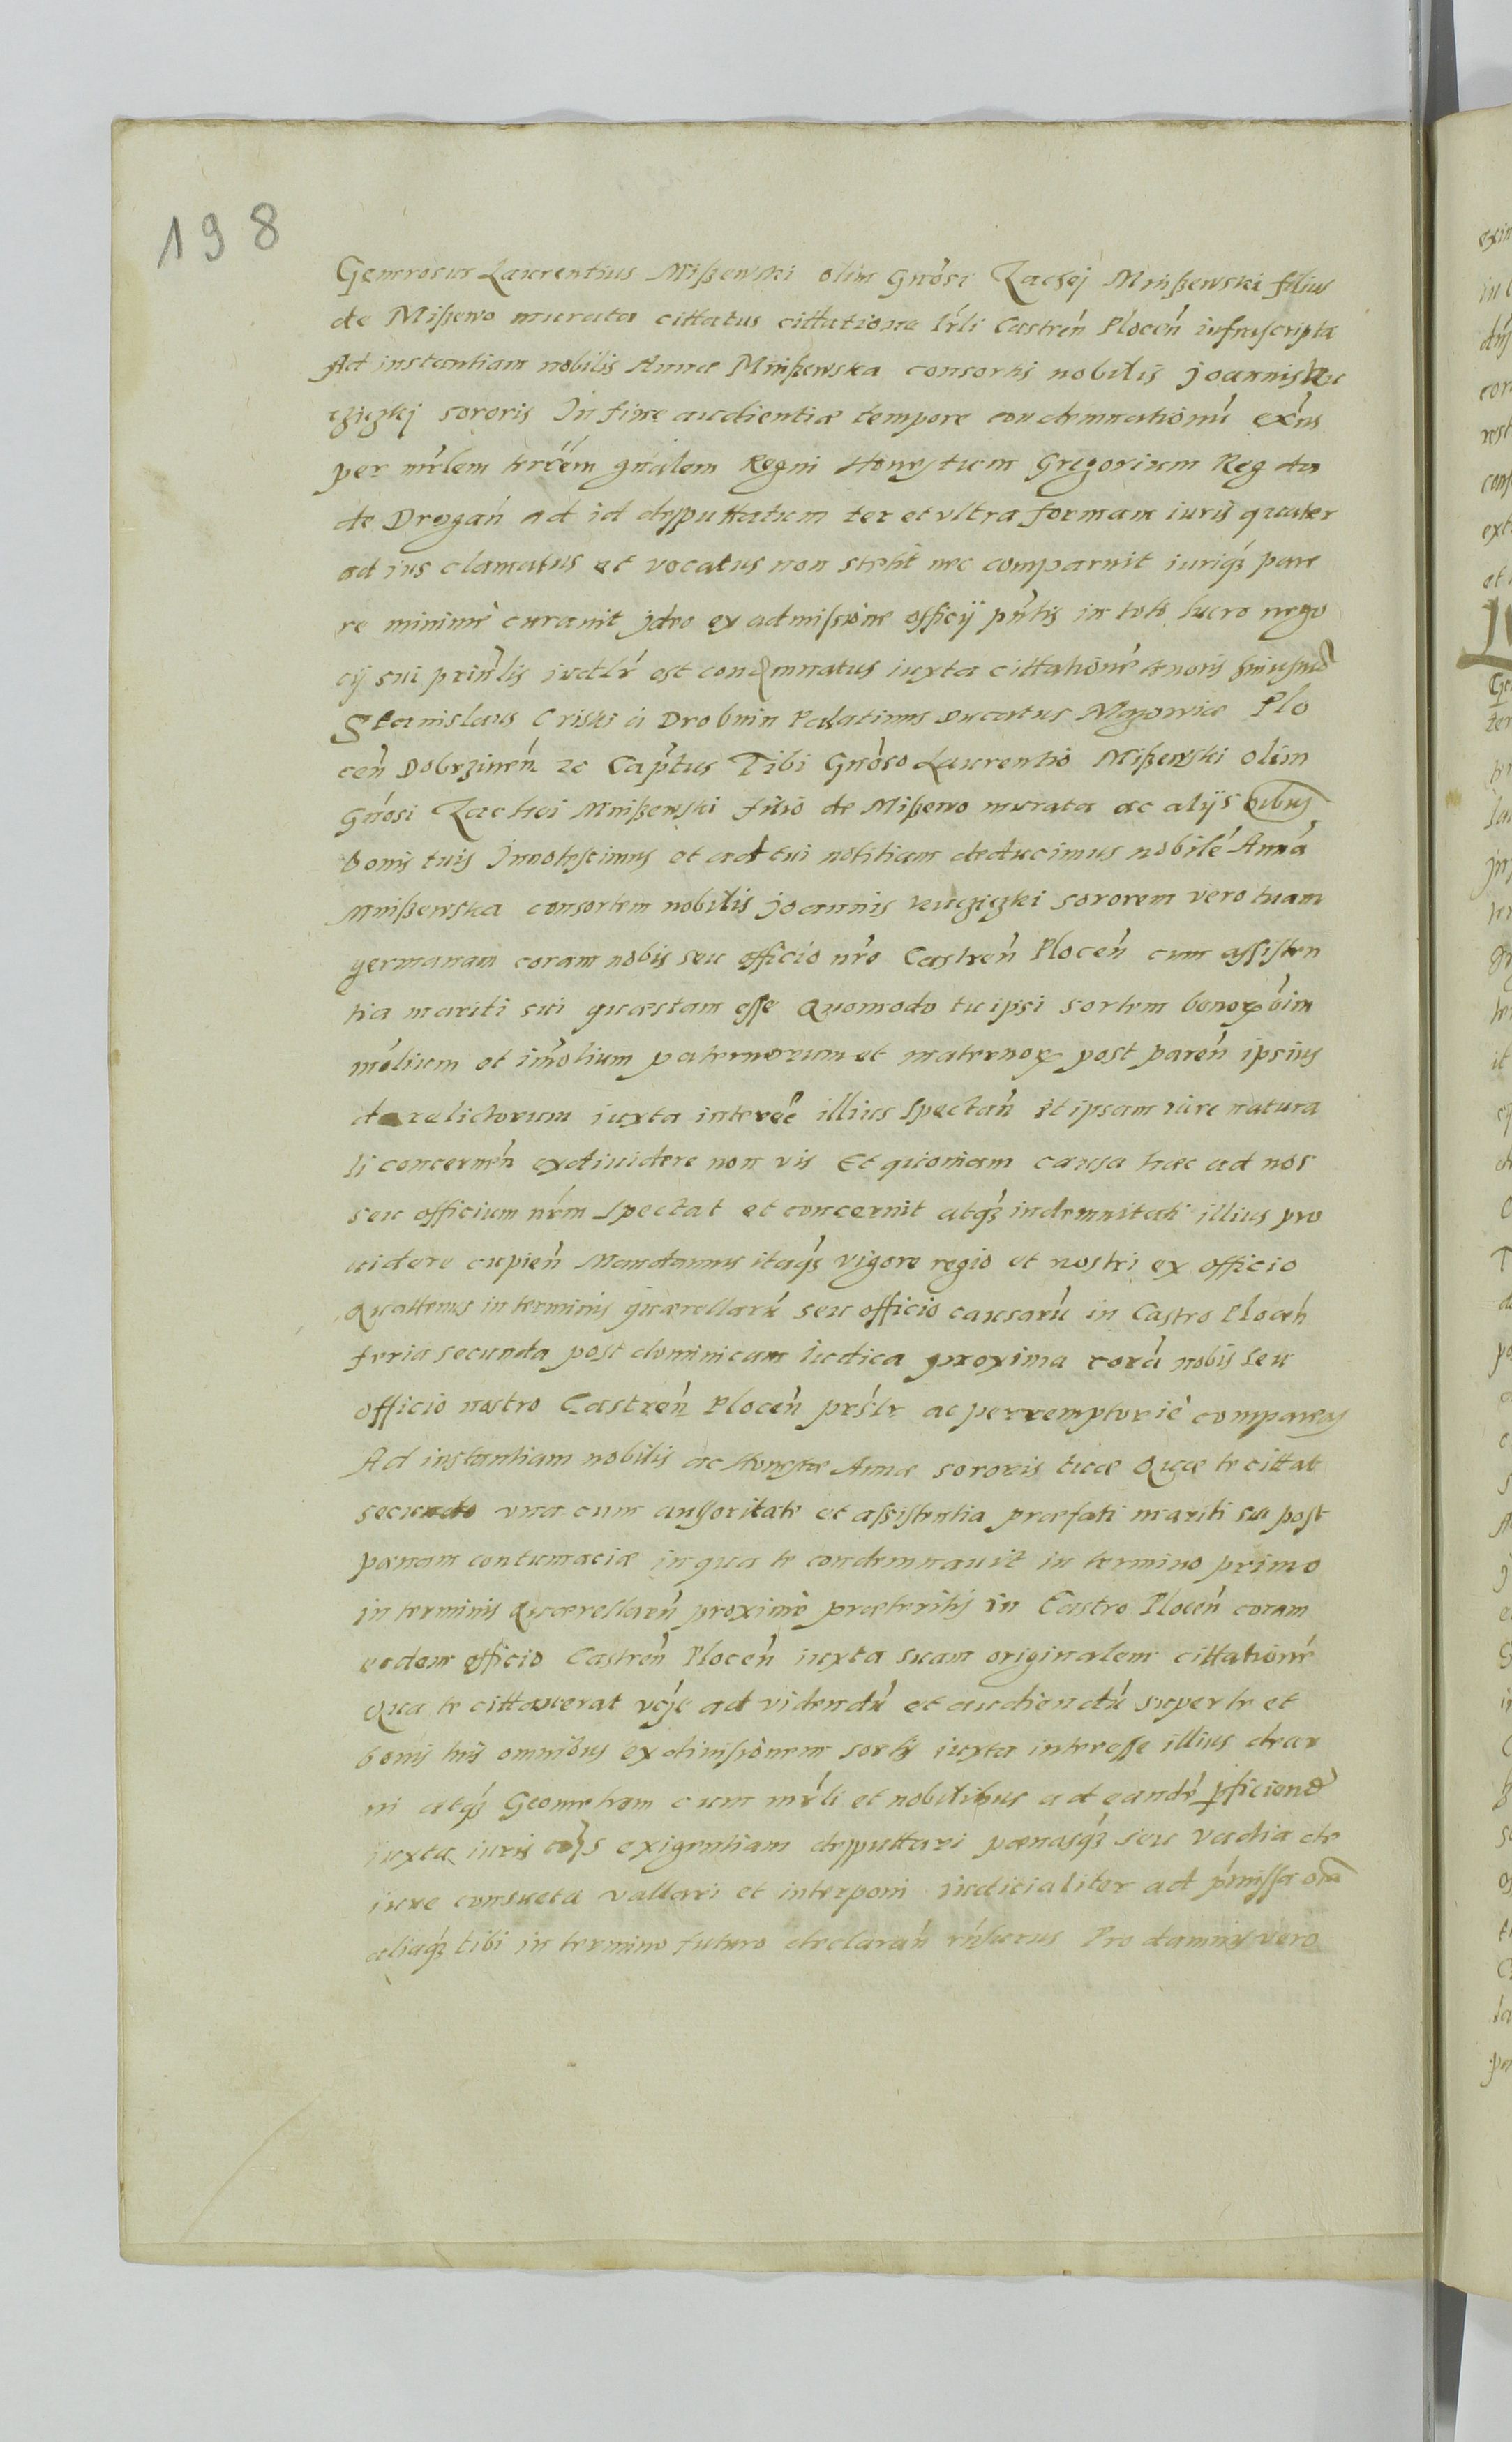 198
Generosus Laurentius Mißewski olim Gnósi Zachej Mnißewski filius
de Mißewo murata cittatus cittatione lrli Castreń Ploceń infrascripta
Ad instantiam nobilis Annæ Mnißewska consortis nobilis Joannis
sororis In fine audientiæ tempore condemnationú exńs
per mrlem trém gnálem Regni Honestum Grigorium Reg
de Drogań ad id desputtatum ter et vltra formam iuris quater
ad ius clamatus et vocatus non stetit nec comparuit iuriqȝ pare
re minimè curauit jdeo ex admissione officij pńtis in toto lucro nego
cij sui prinlis iudlr est condemnatus iuxta cittationé tenoris huiusmod
Stanislaus Criski à Drobnin Palatinus Ducatus Mazowiæ Plo
ceń Dobrzineń ec Captus Tibi Gnóso Laurentio Mißewski olim
Gnósi Zachei Mnißewski filio de Mißewo murata ac alijs oibus
bonis tuis Innotescimus et ad tui notitiam deducimus nobilé Anná
Mnißewska consortem nobilis Joannis sororem vero tuam
germanam coram nobis seu officio nro Castreń Ploceń cum assisten
tia mariti sui quæstam esse Quomodo tu ipsi sortem bonoꝝ oim
mólium et imólium paternorum et maternoꝝ post pareń ipsius
derelictorum iuxta interée illius spectań et ipsam iure natura
li concerneń exdiuidere non vis Et quoniam causa hæc ad nos
seu officium nrm spectat et concernit atqȝ indemnitati illius pro
uidere cupień Mandamus itaqȝ vigore regio et nostri ex officio
Quattenus in terminis quærellarú seu officio causarú in Castro Ploceń
feria secunda post dominicam Iudica proxima corá nobis seu
officio nostro Castreń Ploceń prslr ac perremptorié compareas
Ad instantiam nobilis ac Honestæ Annæ sororis tuæ Quæ te cittat
secundo vna cum authoritate et assistentia præfati mariti sui post
pænam contumaciæ in qua te condemnauit in termino primo
in terminis Quærellareń proximè præteritis in Castro Ploceń coram
eodem officio Castreń Ploceń iuxta suam originalem cittationé
Qua te cittauerat ad videndú et audiendú super te et
bonis tuis omnibus exdiuisionem sortis iuxta interesse illius decer
ni atqȝ Geometram cum mrli et nobilibus ad eandé pficiend
iuxta iuris exigentiam desputtari pænasqȝ seu vadia de
iure consueta vallari et interponi iudicialiter ad pmissa oia
aliaqȝ tibi in termino futuro declarań rńsurus Pro damnis vero